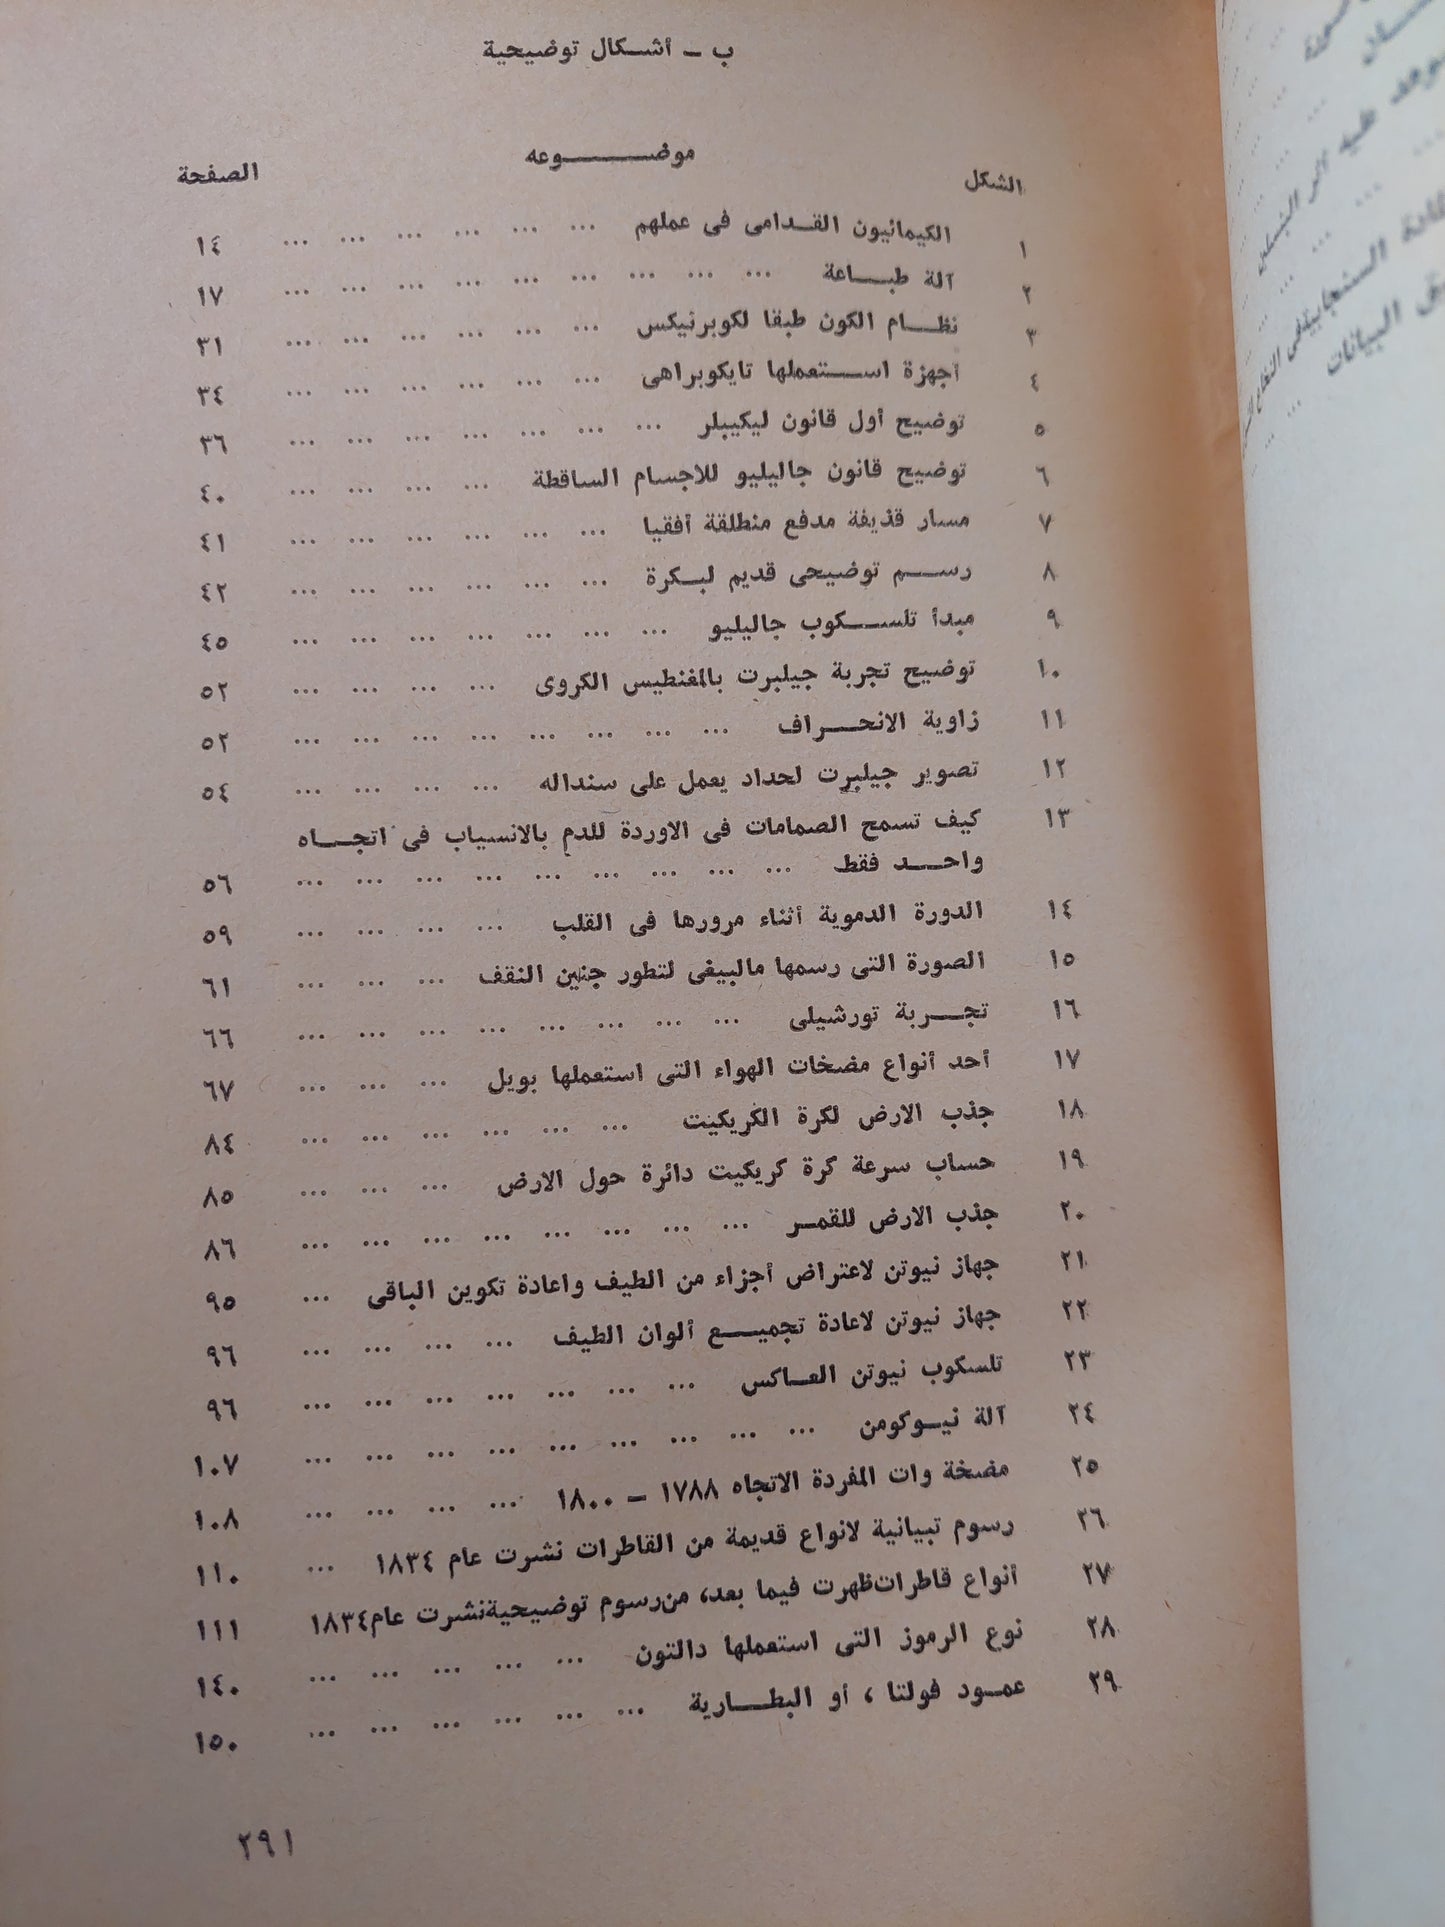 ب - أشكال توضيحية
الشكل موضوعه الصفحة
١ الكيمائيون القدامى فى عملهم ... ... ... ... ... ... ١٤
٢ آلة طباعة ... ... ... ... ... ... ... ... ... ١٧
٣ نظام الكون طبقا لكوبرنيكس ... ... ... ... ... ... ٣١
٤ أجهزة استعملها تايكوبراهى ... ... ... ... ... ... ٣٤
٥ توضيح أول قانون ليكيبلر ... ... ... ... ... ... ... ٣٦
٦ توضيح قانون جاليليو للاجسام الساقطة ... ... ... ... ٤٠
٧ مسار قذيفة مدفع منطلقة أفقيا ... ... ... ... ... ... ٤١
٨ رسم توضيحى قديم لبكرة ... ... ... ... ... ... ٤٢
٩ مبدأ تلسكوب جاليليو ... ... ... ... ... ... ... ٤٥
١٠ توضيح تجربة جيلبرت بالمغنطيس الكروى ... ... ... ... ٥٢
١١ زاوية الانحراف ... ... ... ... ... ... ... ... ٥٢
١٢ تصوير جيلبرت لحداد يعمل على سنداله ... ... ... ... ٥٤
١٣ كيف تسمح الصمامات فى الاوردة للدم بالانسياب فى اتجاه
واحد فقط ... ... ... ... ... ... ... ... ... ٥٦
١٤ الدورة الدموية أثناء مرورها فى القلب ... ... ... ... ٥٩
١٥ الصورة التى رسمها مالبيغى لتطور جنين النقف ... ... ... ٦١
١٦ تجربة تورشيلى ... ... ... ... ... ... ... ... ٦٦
١٧ أحد أنواع مضخات الهواء التى استعملها بويل ... ... ... ٦٧
١٨ جذب الارض لكرة الكريكيت ... ... ... ... ... ... ٨٤
١٩ حساب سرعة كرة كريكيت دائرة حول الارض ... ... ... ٨٥
٢٠ جذب الارض للقمر ... ... ... ... ... ... ... ... ٨٦
٢١ جهاز نيوتن لاعتراض أجزاء من الطيف واعادة تكوين الباقى ... ٩٥
٢٢ جهاز نيوتن لاعادة تجميع ألوان الطيف ... ... ... ... ٩٦
٢٣ تلسكوب نيوتن العاكس ... ... ... ... ... ... ... ٩٦
٢٤ آلة نيوكومن ... ... ... ... ... ... ... ... ... ١٠٧
٢٥ مضخة وات المفردة الاتجاه ١٧٨٨ - ١٨٠٠ ... ... ... ... ١٠٨
٢٦ رسوم تبيانية لانواع قديمة من القاطرات نشرت عام ١٨٣٤ ... ١١٠
٢٧ أنواع قاطرات ظهرت فيما بعد، من رسوم توضيحية نشرت عام ١٨٣٤ ١١١
٢٨ نوع الرموز التى استعملها دالتون ... ... ... ... ... ١٤٠
٢٩ عمود فولتا ، أو البطارية ... ... ... ... ... ... ١٥٠
٢٩١
البيانات